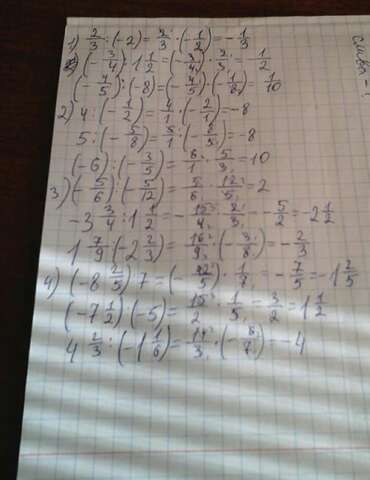 1) 2/3 : (-2) = 2/3 · (-1/2) = -1/3
(-3/4) : 1 1/2 = (-3/4) · 2/3 = 1/2
(-4/5) : (-8) = (-4/5) · (1/8) = 1/10
2) 4 : (-1/2) = 4/1 · (-2/1) = -8
5 : (-5/8) = 5/1 · (-8/5) = -8
(-6) : (-3/5) = 6/1 · 5/3 = 10
3) (-5/6) : (-5/12) = 5/6 · 12/5 = 2
-3 3/4 : 1 1/2 = -15/4 · 2/3 = -5/2 = -2 1/2
1 7/9 : (-2 2/3) = 16/9 · (-3/8) = -2/3
4) (-8 2/5) : 7 = (-42/5) · 1/7 = -7/5 = -1 2/5
(-7 1/2) : (-5) = 15/2 · 1/5 = 3/2 = 1 1/2
4 2/3 : (-1 1/6) = 14/3 · (-6/7) = -4